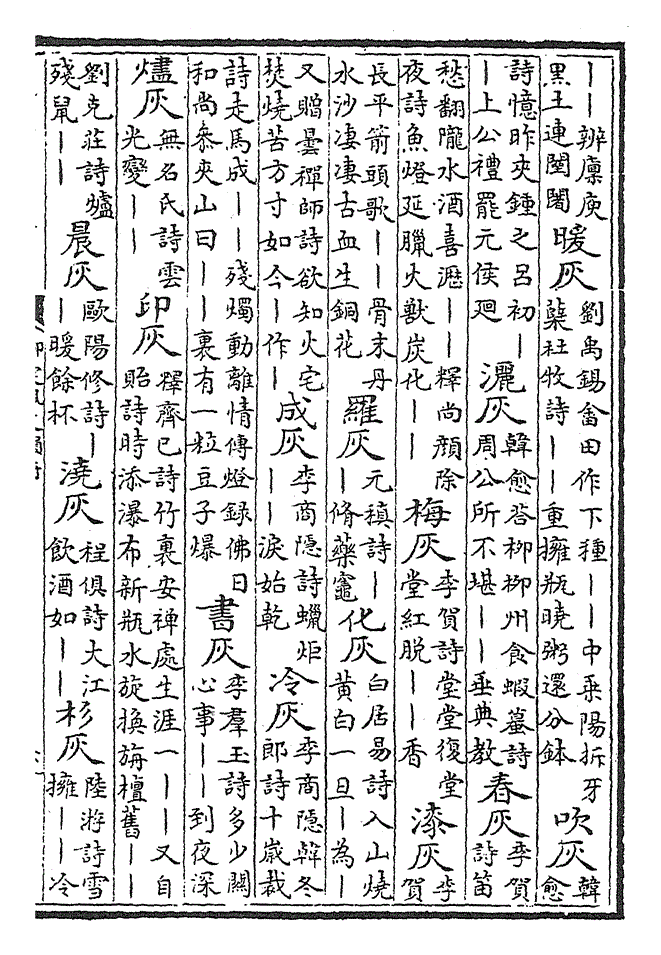 ——辨廩庾黑王連闉闍暖灰劉禹錫畬田作下種——中乘陽拆牙蘖杜牧詩——重擁瓶曉粥還分鉢吹灰韓愈
詩憶昨夾鍾之呂初—上公禮罷元侯廻灑灰韓愈答柳柳州食蝦蟇詩周公所不堪——垂典教春灰李賀詩笛
愁翻隴水酒喜瀝——釋尚顏除夜詩魚燈延臘火獸炭化——梅灰李賀詩堂堂復堂堂紅脫——香漆灰李賀
長平箭頭歌——骨末丹水沙凄凄古血生銅花羅灰元稹詩——脩藥竈化灰白居易詩入山燒黃白一旦—為—
又贈曇禪師詩欲知火宅焚燒苦方寸如今—作—成灰李商隱詩蠟炬——淚始乾冷灰李商隱韓冬郎詩十歲裁
詩走馬成——殘燭動離情傳燈錄佛日和尚叅夾山曰——裏有一粒豆子爆書灰李羣玉詩多少關心事——到夜深
燼灰無名氏詩雲光變——印灰釋齊已詩竹裏安禪處生涯一——又自貽詩時添瀑布新瓶水旋換旃檀舊——
劉克莊詩爐殘鼠——晨灰歐陽修詩——暖餘杯澆灰程俱詩大江飲酒如——杉灰陸游詩雪擁——冷